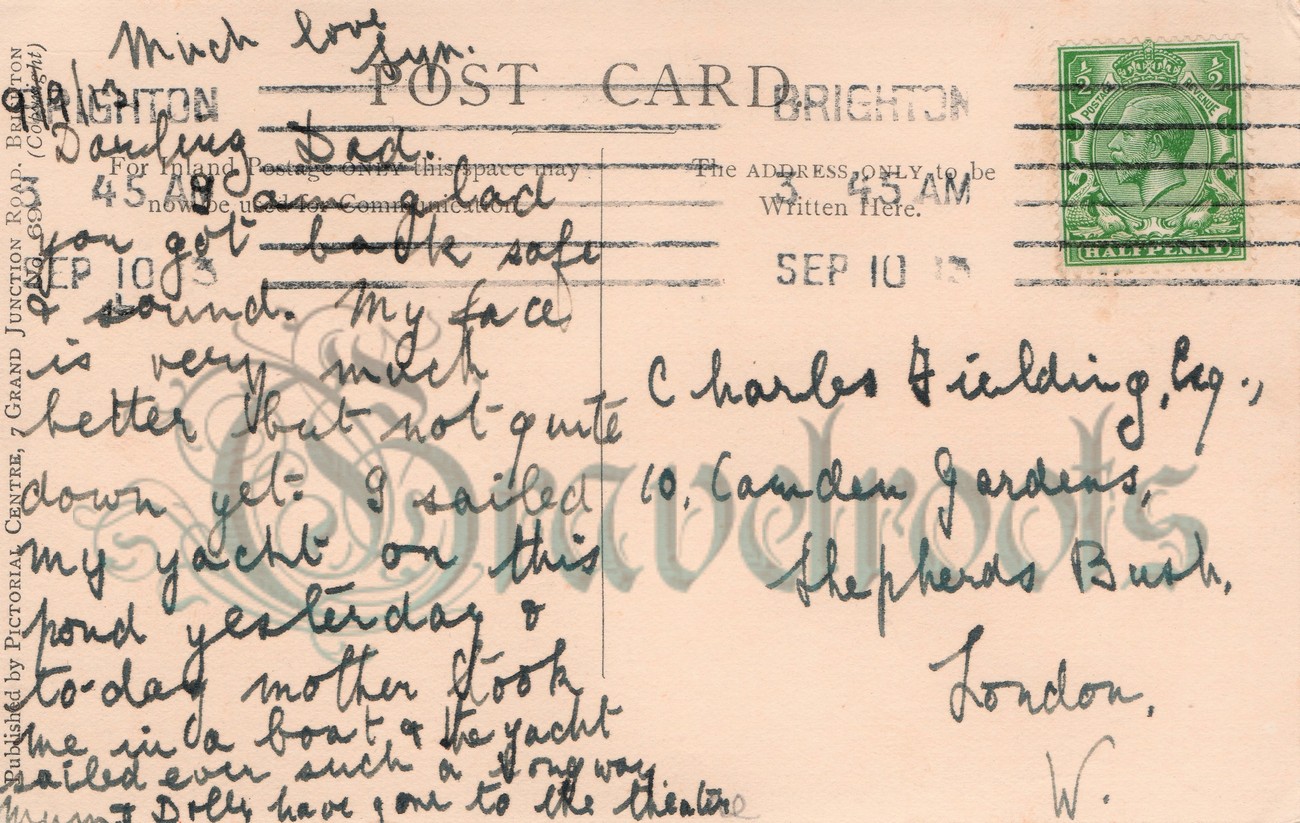 Much love
Syn.
POST CARD.
BRIGHTON
BRIGHTON
3 45 AM
3 45 AM
SEP 10 13
SEP 10 13
½ ½
POSTAGE REVENUE
HALFPENNY
For Inland Postage ONLY this space may
now be used for Communication.
The ADDRESS ONLY to be
Written Here.
Published by Pictorial Centre, 7 Grand Junction Road. Brighton
(Copyright)
9/9/13
Darling Dad.
I am glad
you got back safe
& sound. My face
is very much
better but not quite
down yet. I sailed
my yacht on this
pond yesterday &
to-day mother took
me in a boat & the yacht
sailed ever such a long way
Mum & Dolly have gone to the theatre
Charles Fielding, Esq.,
10, Camden Gardens,
Shepherds Bush,
London,
W.
Gravelroots